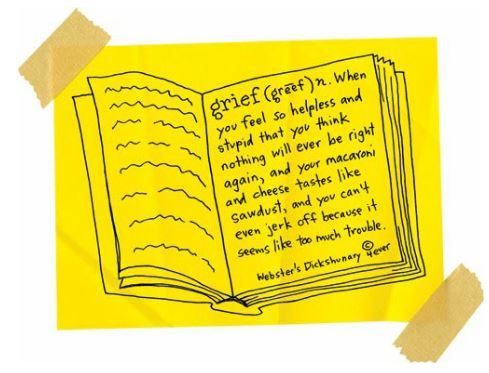 grief (grēef) n. When
you feel so helpless and
stupid that you think
nothing will ever be right
again, and your macaroni
and cheese tastes like
sawdust, and you can't
even jerk off because it
seems like too much trouble.
Webster's Dickshunary © 4ever